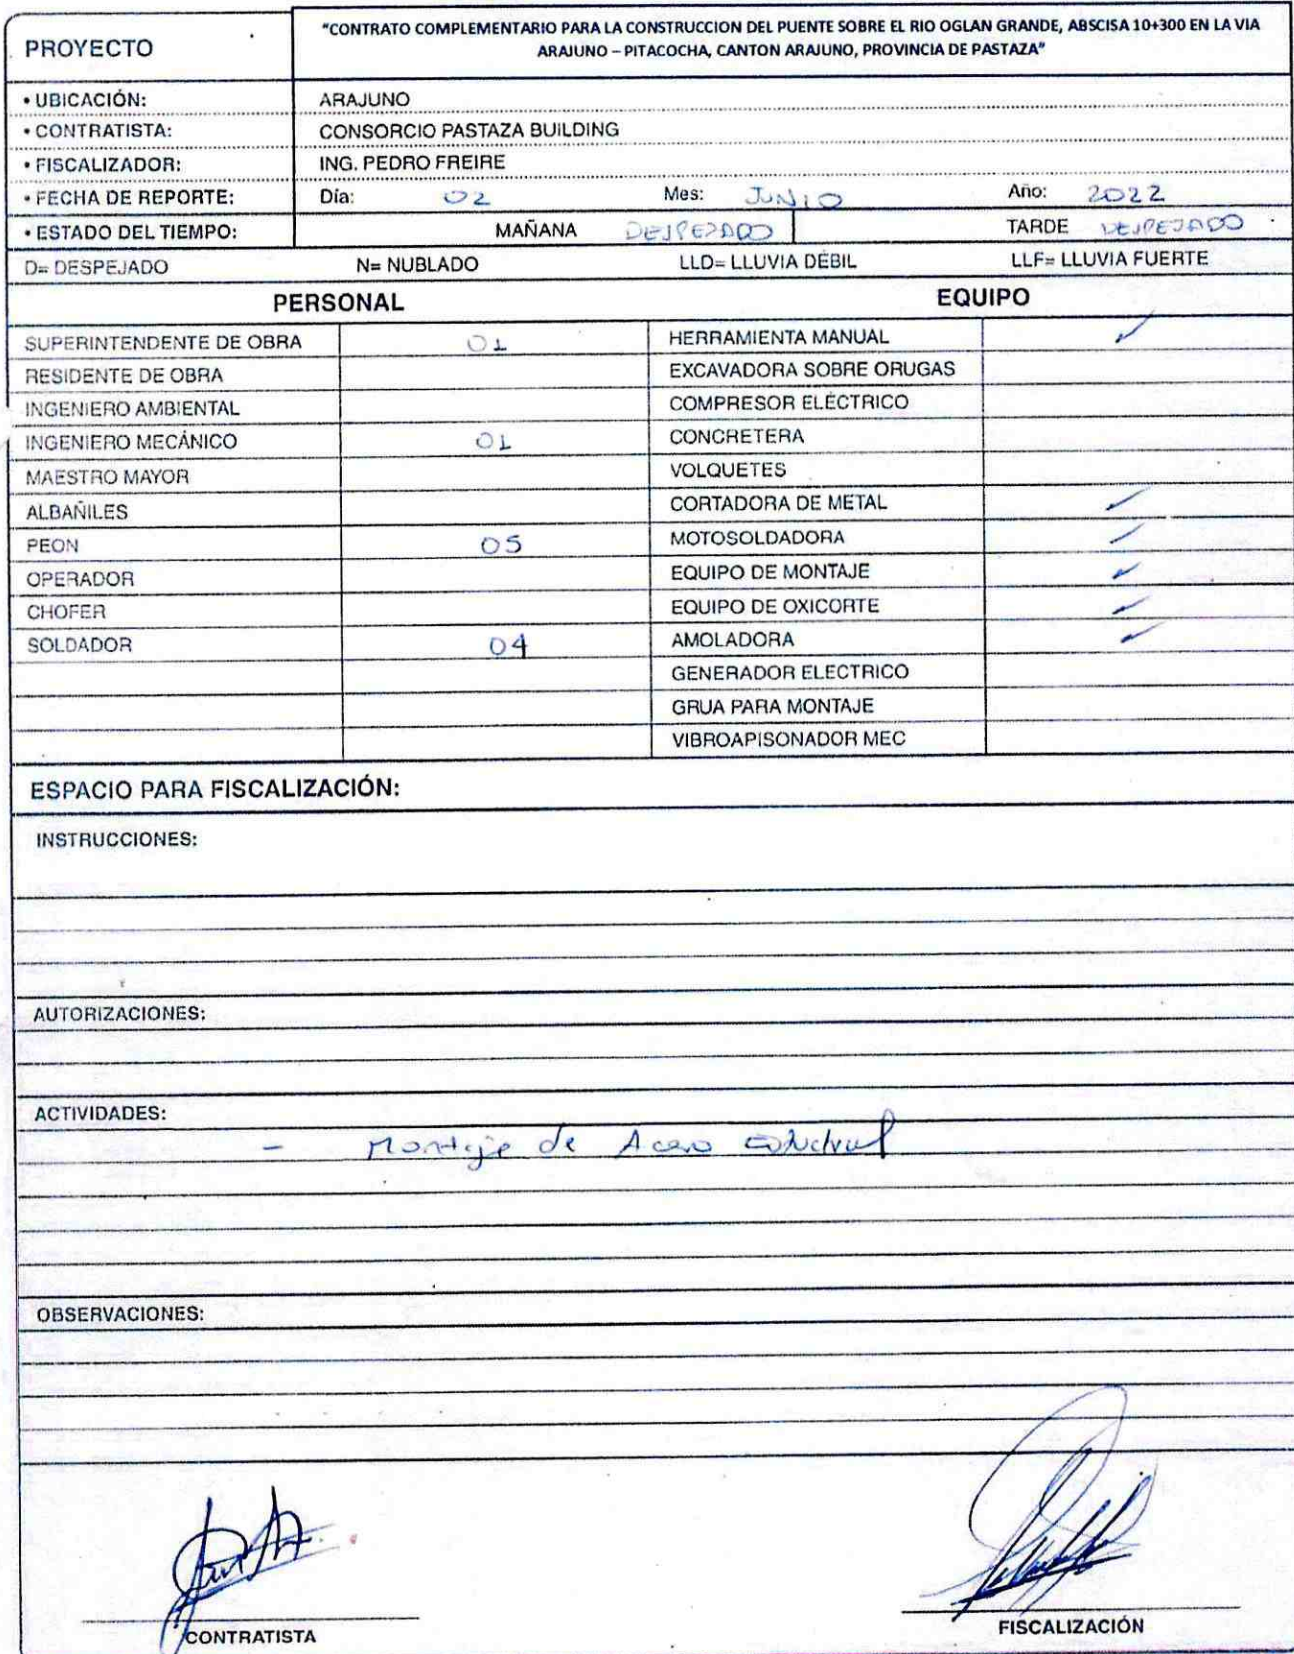 PROYECTO
"CONTRATO COMPLEMENTARIO PARA LA CONSTRUCCION DEL PUENTE SOBRE EL RIO OGLAN GRANDE, ABSCISA 10+300 EN LA VIA
ARAJUNO – PITACOCHA, CANTON ARAJUNO, PROVINCIA DE PASTAZA"
• UBICACIÓN: ARAJUNO
• CONTRATISTA: CONSORCIO PASTAZA BUILDING
• FISCALIZADOR: ING. PEDRO FREIRE
• FECHA DE REPORTE: Día: 02 Mes: JUNIO Año: 2022
• ESTADO DEL TIEMPO: MAÑANA DESPEJADO TARDE DESPEJADO
D= DESPEJADO N= NUBLADO LLD= LLUVIA DÉBIL LLF= LLUVIA FUERTE
PERSONAL EQUIPO
SUPERINTENDENTE DE OBRA 01 HERRAMIENTA MANUAL ✓
RESIDENTE DE OBRA EXCAVADORA SOBRE ORUGAS
INGENIERO AMBIENTAL COMPRESOR ELÉCTRICO
INGENIERO MECÁNICO 01 CONCRETERA
MAESTRO MAYOR VOLQUETES
ALBAÑILES CORTADORA DE METAL ✓
PEON 05 MOTOSOLDADORA ✓
OPERADOR EQUIPO DE MONTAJE ✓
CHOFER EQUIPO DE OXICORTE ✓
SOLDADOR 04 AMOLADORA ✓
GENERADOR ELECTRICO
GRUA PARA MONTAJE
VIBROAPISONADOR MEC
ESPACIO PARA FISCALIZACIÓN:
INSTRUCCIONES:
AUTORIZACIONES:
ACTIVIDADES:
- Montaje de Acero Estructural
OBSERVACIONES:
CONTRATISTA FISCALIZACIÓN